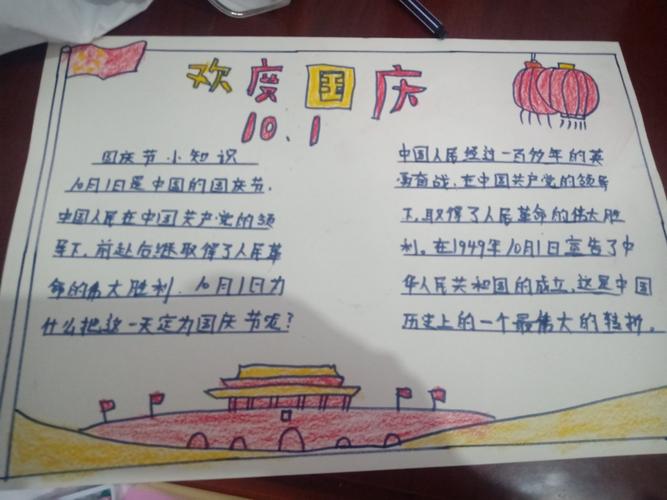 欢度国庆
10.1
国庆节小知识
10月1日是中国的国庆节.
中国人民在中国共产党的领
导下.前赴后继取得了人民革
命的伟大胜利.10月1日为
什么把这一天定为国庆节呢?
中国人民经过一百多年的英
勇奋战.在中国共产党的领导
下.取得了人民革命的伟大胜
利.在1949年10月1日宣告了中
华人民共和国的成立.这是中国
历史上的一个最伟大的转折.